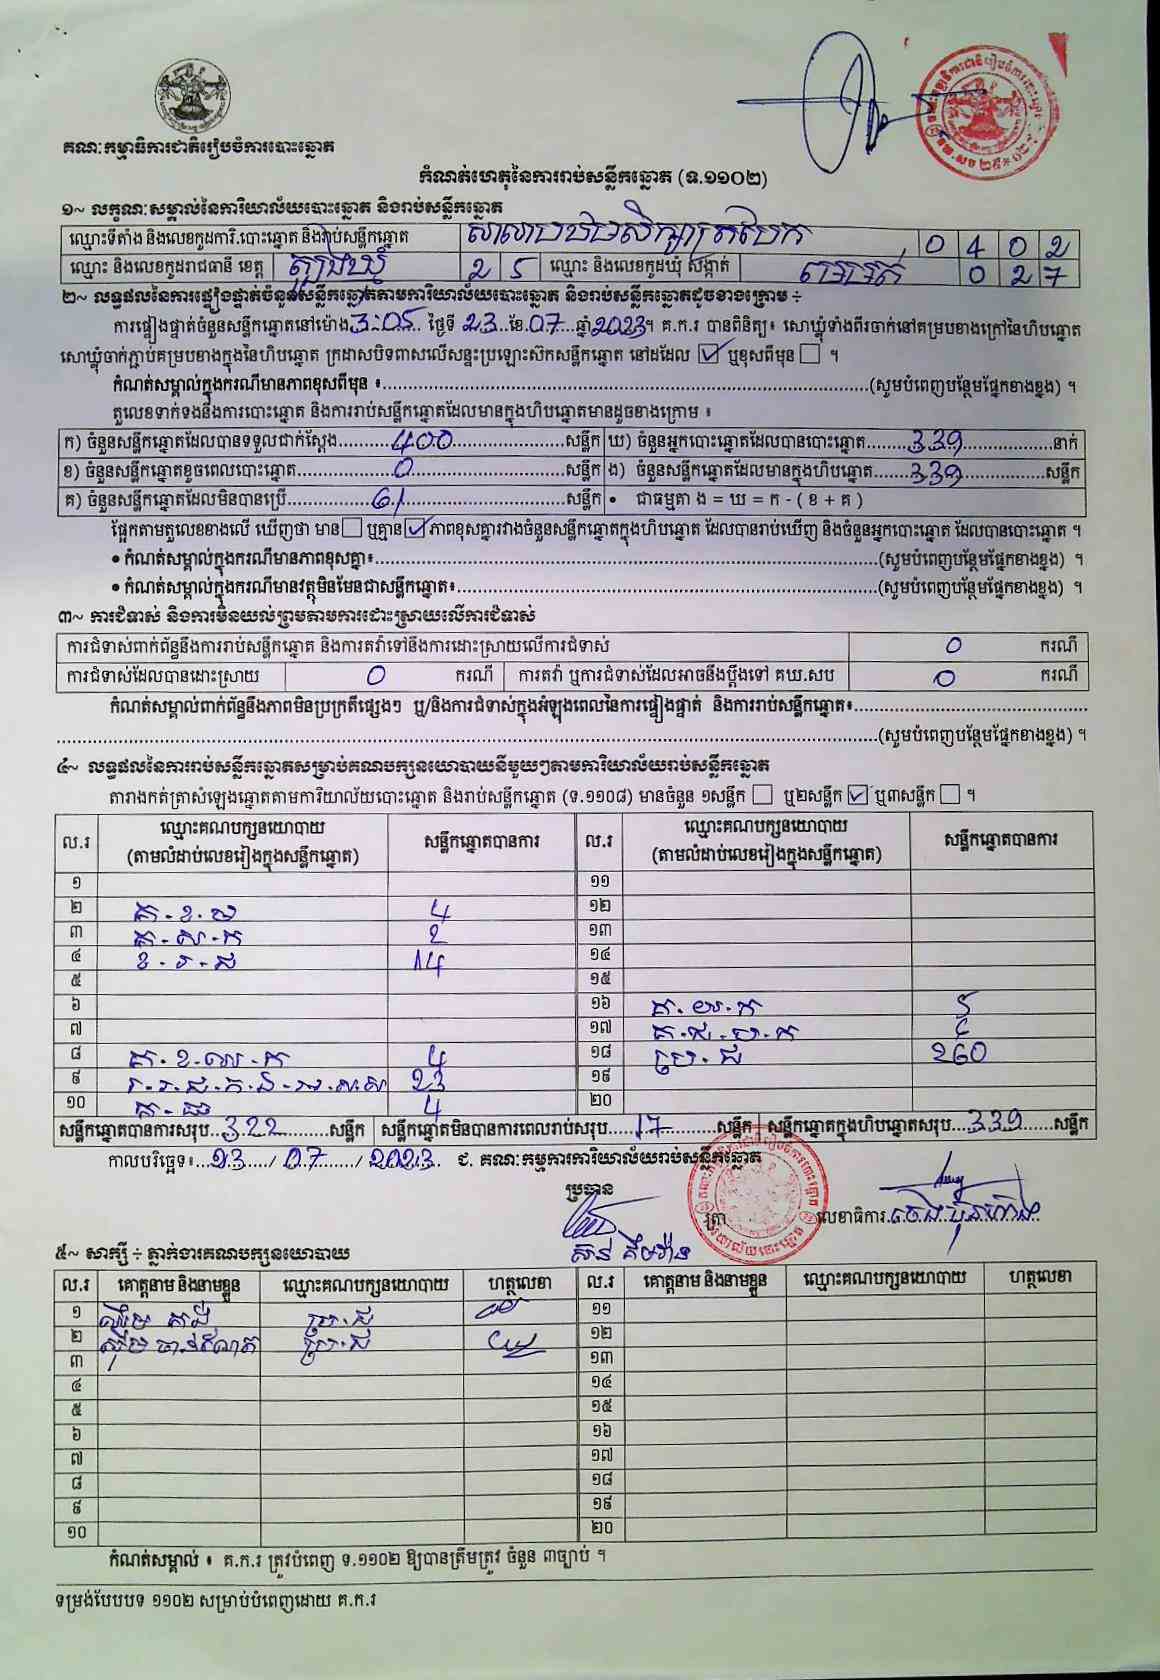 គណៈកម្មាធិការជាតិរៀបចំការបោះឆ្នោត
កំណត់ហេតុនៃការរាប់សន្លឹកឆ្នោត (ទ.១១០២)
១~ លក្ខណៈសម្គាល់នៃការិយាល័យបោះឆ្នោត និងរាប់សន្លឹកឆ្នោត
ឈ្មោះទីតាំង និងលេខកូដការិ.បោះឆ្នោត និងរាប់សន្លឹកឆ្នោត សាលាបឋមសិក្សាត្រពែក 0 4 0 2
ឈ្មោះ និងលេខកូដរាជធានី ខេត្ត ត្បូងឃ្មុំ 2 5 ឈ្មោះ និងលេខកូដឃុំ សង្កាត់ មេមត់ 0 2 7
២~ លទ្ធផលនៃការផ្ទៀងផ្ទាត់ចំនួនសន្លឹកឆ្នោតតាមការិយាល័យបោះឆ្នោត និងរាប់សន្លឹកឆ្នោតដូចខាងក្រោម ÷
ការផ្ទៀងផ្ទាត់ចំនួនសន្លឹកឆ្នោតនៅម៉ោង 3:05 ថ្ងៃទី 23 ខែ 07 ឆ្នាំ 2023។ គ.ក.រ បានពិនិត្យ៖ សោឃ្លុំទាំងពីរចាក់នៅគម្របខាងក្រៅនៃហិបឆ្នោត
សោឃ្លុំចាក់ភ្ជាប់គម្របខាងក្នុងនៃហិបឆ្នោត ក្រដាសបិទពាសលើសន្ទះប្រឡោះស៊កសន្លឹកឆ្នោត នៅដដែល ☑ ឬខុសពីមុន ☐ ។
កំណត់សម្គាល់ក្នុងករណីមានភាពខុសពីមុន ៖ (សូមបំពេញបន្ថែមផ្នែកខាងខ្នង) ។
តួលេខទាក់ទងនឹងការបោះឆ្នោត និងការរាប់សន្លឹកឆ្នោតដែលមានក្នុងហិបឆ្នោតមានដូចខាងក្រោម ៖
ក) ចំនួនសន្លឹកឆ្នោតដែលបានទទួលជាក់ស្តែង 400 សន្លឹក ឃ) ចំនួនអ្នកបោះឆ្នោតដែលបានបោះឆ្នោត 339 នាក់
ខ) ចំនួនសន្លឹកឆ្នោតខូចពេលបោះឆ្នោត 0 សន្លឹក ង) ចំនួនសន្លឹកឆ្នោតដែលមានក្នុងហិបឆ្នោត 339 សន្លឹក
គ) ចំនួនសន្លឹកឆ្នោតដែលមិនបានប្រើ 61 សន្លឹក • ជាធម្មតា ង = ឃ = ក - ( ខ + គ )
ផ្អែកតាមតួលេខខាងលើ ឃើញថា មាន ☐ ឬគ្មាន ☑ ភាពខុសគ្នារវាងចំនួនសន្លឹកឆ្នោតក្នុងហិបឆ្នោត ដែលបានរាប់ឃើញ និងចំនួនអ្នកបោះឆ្នោត ដែលបានបោះឆ្នោត ។
• កំណត់សម្គាល់ក្នុងករណីមានភាពខុសគ្នា៖ (សូមបំពេញបន្ថែមផ្នែកខាងខ្នង) ។
• កំណត់សម្គាល់ក្នុងករណីមានវត្ថុមិនមែនជាសន្លឹកឆ្នោត៖ (សូមបំពេញបន្ថែមផ្នែកខាងខ្នង) ។
៣~ ការជំទាស់ និងការមិនយល់ព្រមតាមការដោះស្រាយលើការជំទាស់
ការជំទាស់ពាក់ព័ន្ធនឹងការរាប់សន្លឹកឆ្នោត និងការតវ៉ាទៅនឹងការដោះស្រាយលើការជំទាស់ 0 ករណី
ការជំទាស់ដែលបានដោះស្រាយ 0 ករណី ការតវ៉ា ឬការជំទាស់ដែលអាចនឹងប្តឹងទៅ គឃ.សប 0 ករណី
កំណត់សម្គាល់ពាក់ព័ន្ធនឹងភាពមិនប្រក្រតីផ្សេងៗ ឬ/និងការជំទាស់ក្នុងអំឡុងពេលនៃការផ្ទៀងផ្ទាត់ និងការរាប់សន្លឹកឆ្នោត៖
(សូមបំពេញបន្ថែមផ្នែកខាងខ្នង) ។
៤~ លទ្ធផលនៃការរាប់សន្លឹកឆ្នោតសម្រាប់គណបក្សនយោបាយនីមួយៗតាមការិយាល័យរាប់សន្លឹកឆ្នោត
តារាងកត់ត្រាសំឡេងឆ្នោតតាមការិយាល័យបោះឆ្នោត និងរាប់សន្លឹកឆ្នោត (ទ.១១០៨) មានចំនួន ១សន្លឹក ☐ ឬ២សន្លឹក ☑ ឬ៣សន្លឹក ☐ ។
ល.រ ឈ្មោះគណបក្សនយោបាយ (តាមលំដាប់លេខរៀងក្នុងសន្លឹកឆ្នោត) សន្លឹកឆ្នោតបានការ ល.រ ឈ្មោះគណបក្សនយោបាយ (តាមលំដាប់លេខរៀងក្នុងសន្លឹកឆ្នោត) សន្លឹកឆ្នោតបានការ
១ ១១
២ គ.ខ.ស 4 ១២
៣ គ.ស.ក 2 ១៣
៤ ខ.រ.ជ 14 ១៤
៥ ១៥
៦ ១៦ គ.យ.ក 5
៧ ១៧ គ.ជ.ប.ក
៨ គ.ខ.អ.ក 4 ១៨ ប្រ.ជ 260
៩ 23 ១៩
១០ គ.ធ 4 ២០
សន្លឹកឆ្នោតបានការសរុប 322 សន្លឹក សន្លឹកឆ្នោតមិនបានការពេលរាប់សរុប 17 សន្លឹក សន្លឹកឆ្នោតក្នុងហិបឆ្នោតសរុប 339 សន្លឹក
កាលបរិច្ឆេទ៖ 23 / 07 / 2023 ជ. គណៈកម្មការការិយាល័យរាប់សន្លឹកឆ្នោត
ប្រធាន
ត្រា លេខាធិការ ចេង ប៊ុនហ៊ាង
សន់ គឹមវ៉ាន
៥~ សាក្សី ÷ ភ្នាក់ងារគណបក្សនយោបាយ
ល.រ គោត្តនាម និងនាមខ្លួន ឈ្មោះគណបក្សនយោបាយ ហត្ថលេខា ល.រ គោត្តនាម និងនាមខ្លួន ឈ្មោះគណបក្សនយោបាយ ហត្ថលេខា
១ ប្រ.ជ ១១
២ ប្រ.ជ ១២
៣ ១៣
៤ ១៤
៥ ១៥
៦ ១៦
៧ ១៧
៨ ១៨
៩ ១៩
១០ ២០
កំណត់សម្គាល់ ៖ គ.ក.រ ត្រូវបំពេញ ទ.១១០២ ឱ្យបានត្រឹមត្រូវ ចំនួន ៣ច្បាប់ ។
ទម្រង់បែបបទ ១១០២ សម្រាប់បំពេញដោយ គ.ក.រ